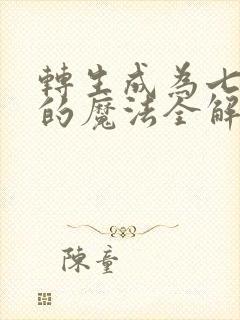 轉生成為七
的魔法全解
陳童